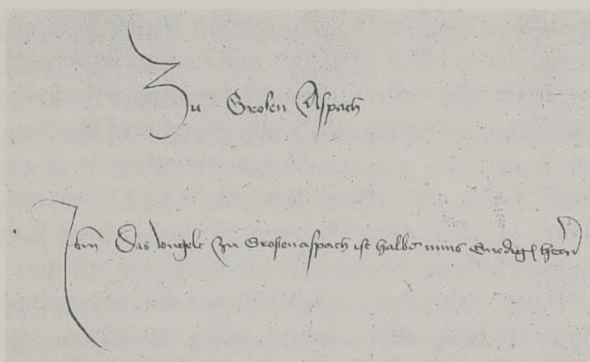 Zu Grosen Aspach
Itm Das vngelt zu Grosenaspach ist halbs mins Gnedigē hern